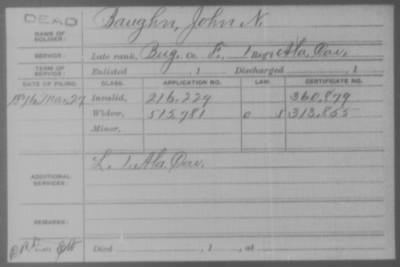 DEAD
Baughn, John N.
NAME OF SOLDIER:
SERVICE: Late rank, Bug. Co. F, 1 Reg't Ala Cav.
TERM OF SERVICE: Enlisted , 1 Discharged , 1
DATE OF FILING. CLASS. APPLICATION NO. LAW. CERTIFICATE NO.
1876 Mar. 27 Invalid, 216.229 360.879
Widow, 512.781 313.855
Minor,
ADDITIONAL SERVICES:
L. 1. Ala Cav.
REMARKS:
Died , 1 , at